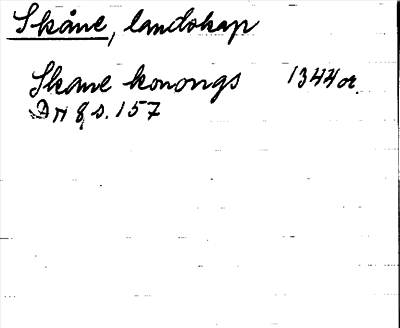 Skåne, landskap
Skane konongs 1344 or.
DN 8, s. 157